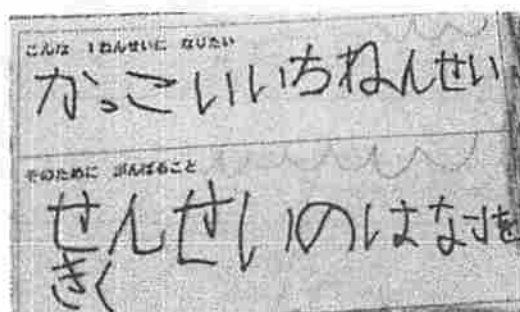 こんな 1ねんせいに なりたい
かっこいいちねんせい
そのために がんばること
せんせいのはなしを
きく